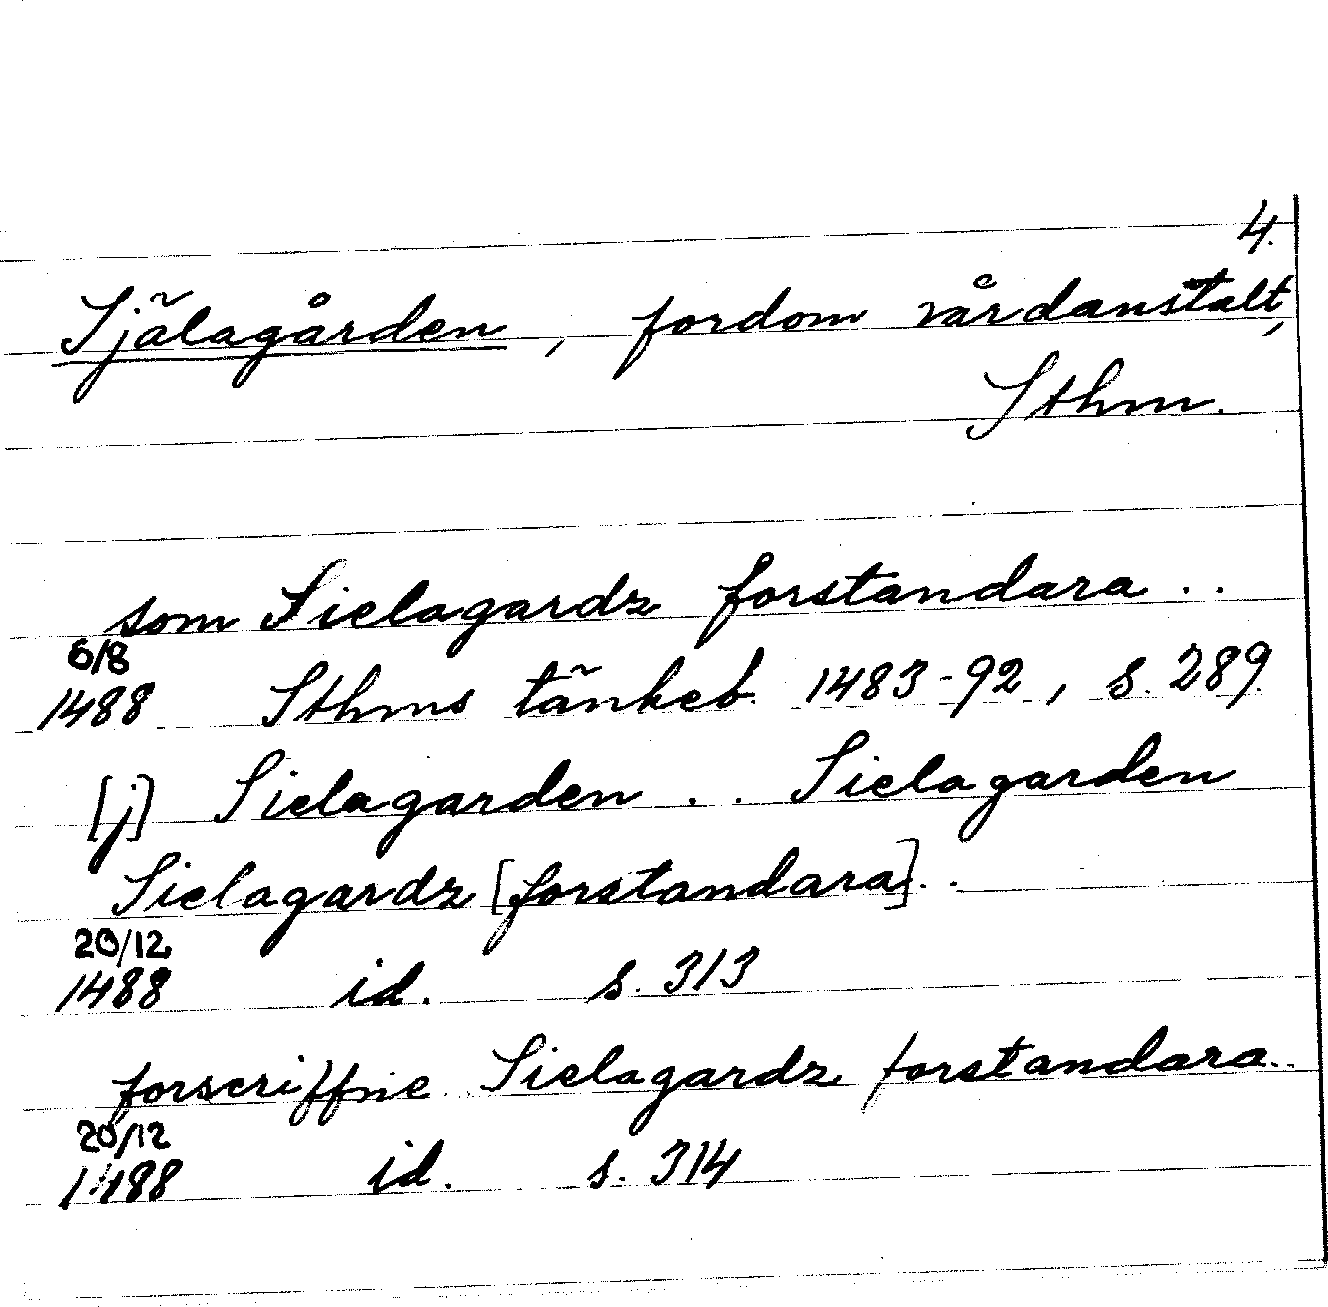 4.
Själagården, fordom vårdanstalt,
Sthm.
som Sielagardz forstandara . .
6/8
1488 Sthms tänkeb. 1483-92, s. 289.
[j] Sielagarden . . Sielagarden
Sielagardz [forstandara] . .
20/12
1488 id. s. 313
forscriffne Sielagardz forstandara . .
20/12
1488 id. s. 314